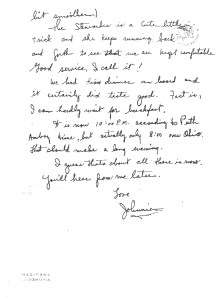 bit smoother)
The Stewardess is a cute little
trick and she keeps running back
and forth to see that we are kept comfortable
Good service, I call it!
We had our dinner on board and
it certainly did taste good. Fact is,
I can hardly wait for breakfast.
It is now 10:00 P.M. according to Perth
Amboy time, but actually only 8:00 over Ohio.
That should make a long evening.
I guess that's about all there is now.
You'll hear from me later.
Love
Johnnie